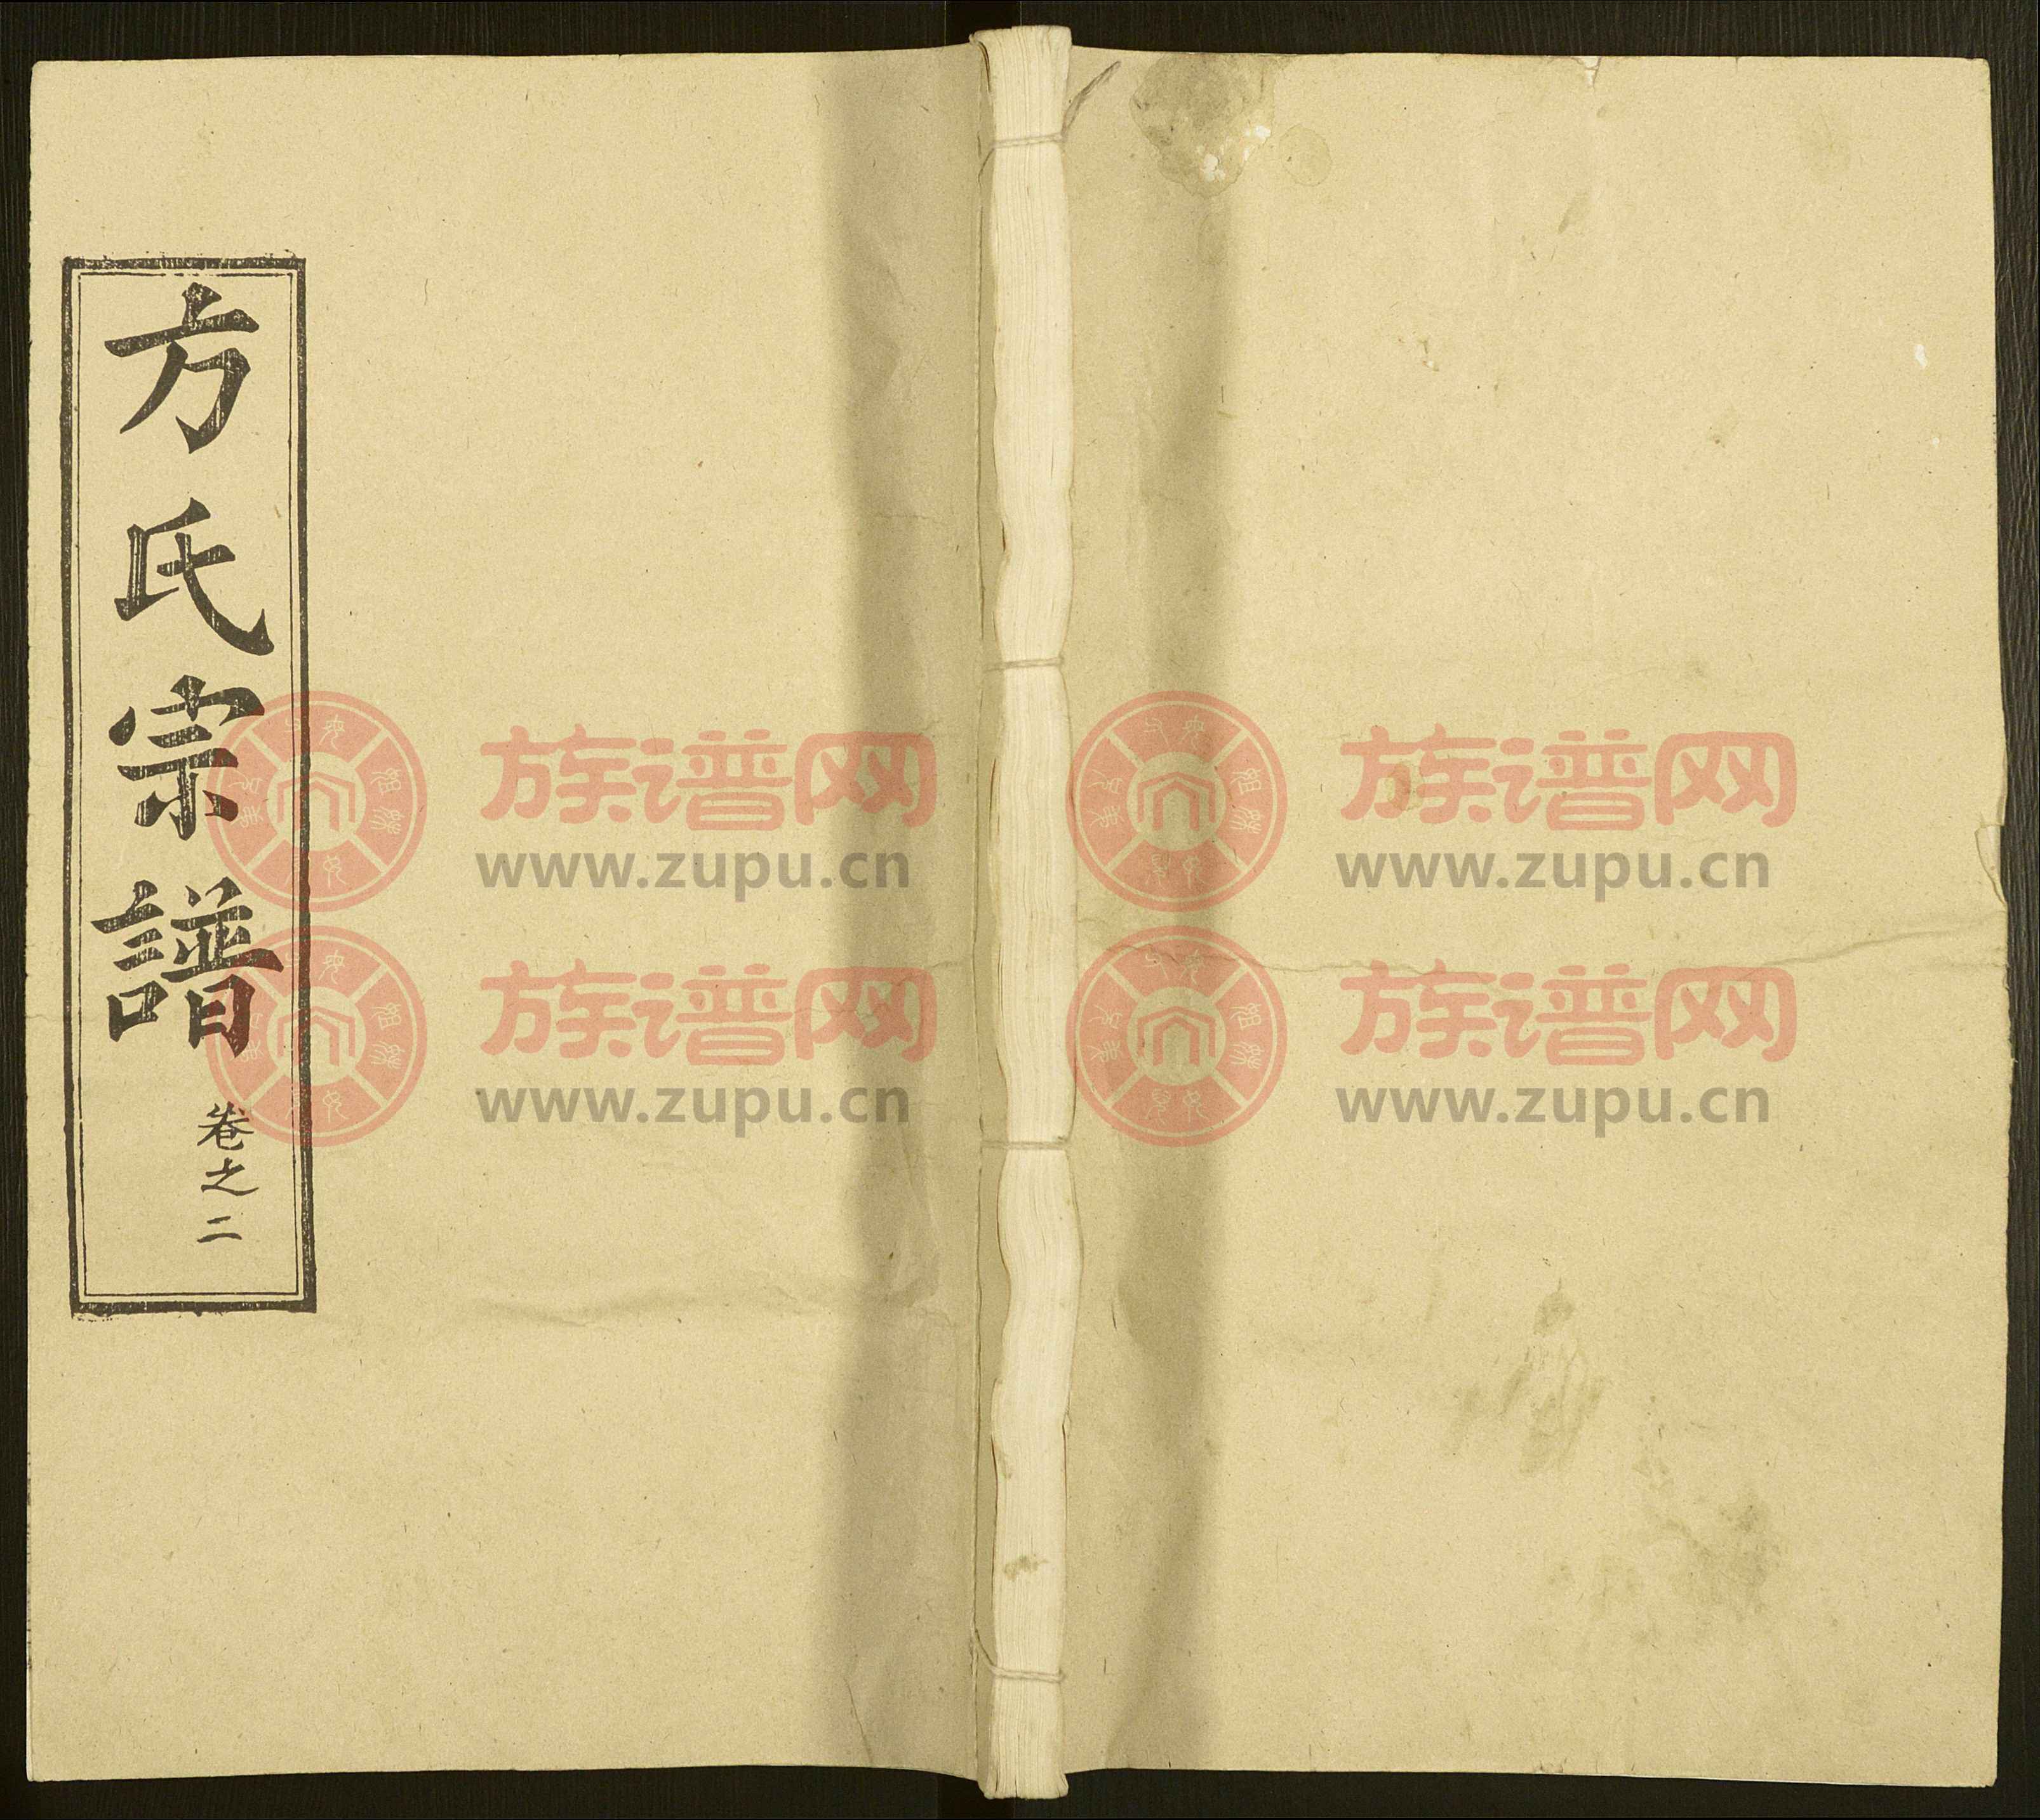 方氏宗譜
卷之二
族谱网
www.zupu.cn
族谱网
www.zupu.cn
族谱网
www.zupu.cn
族谱网
www.zupu.cn